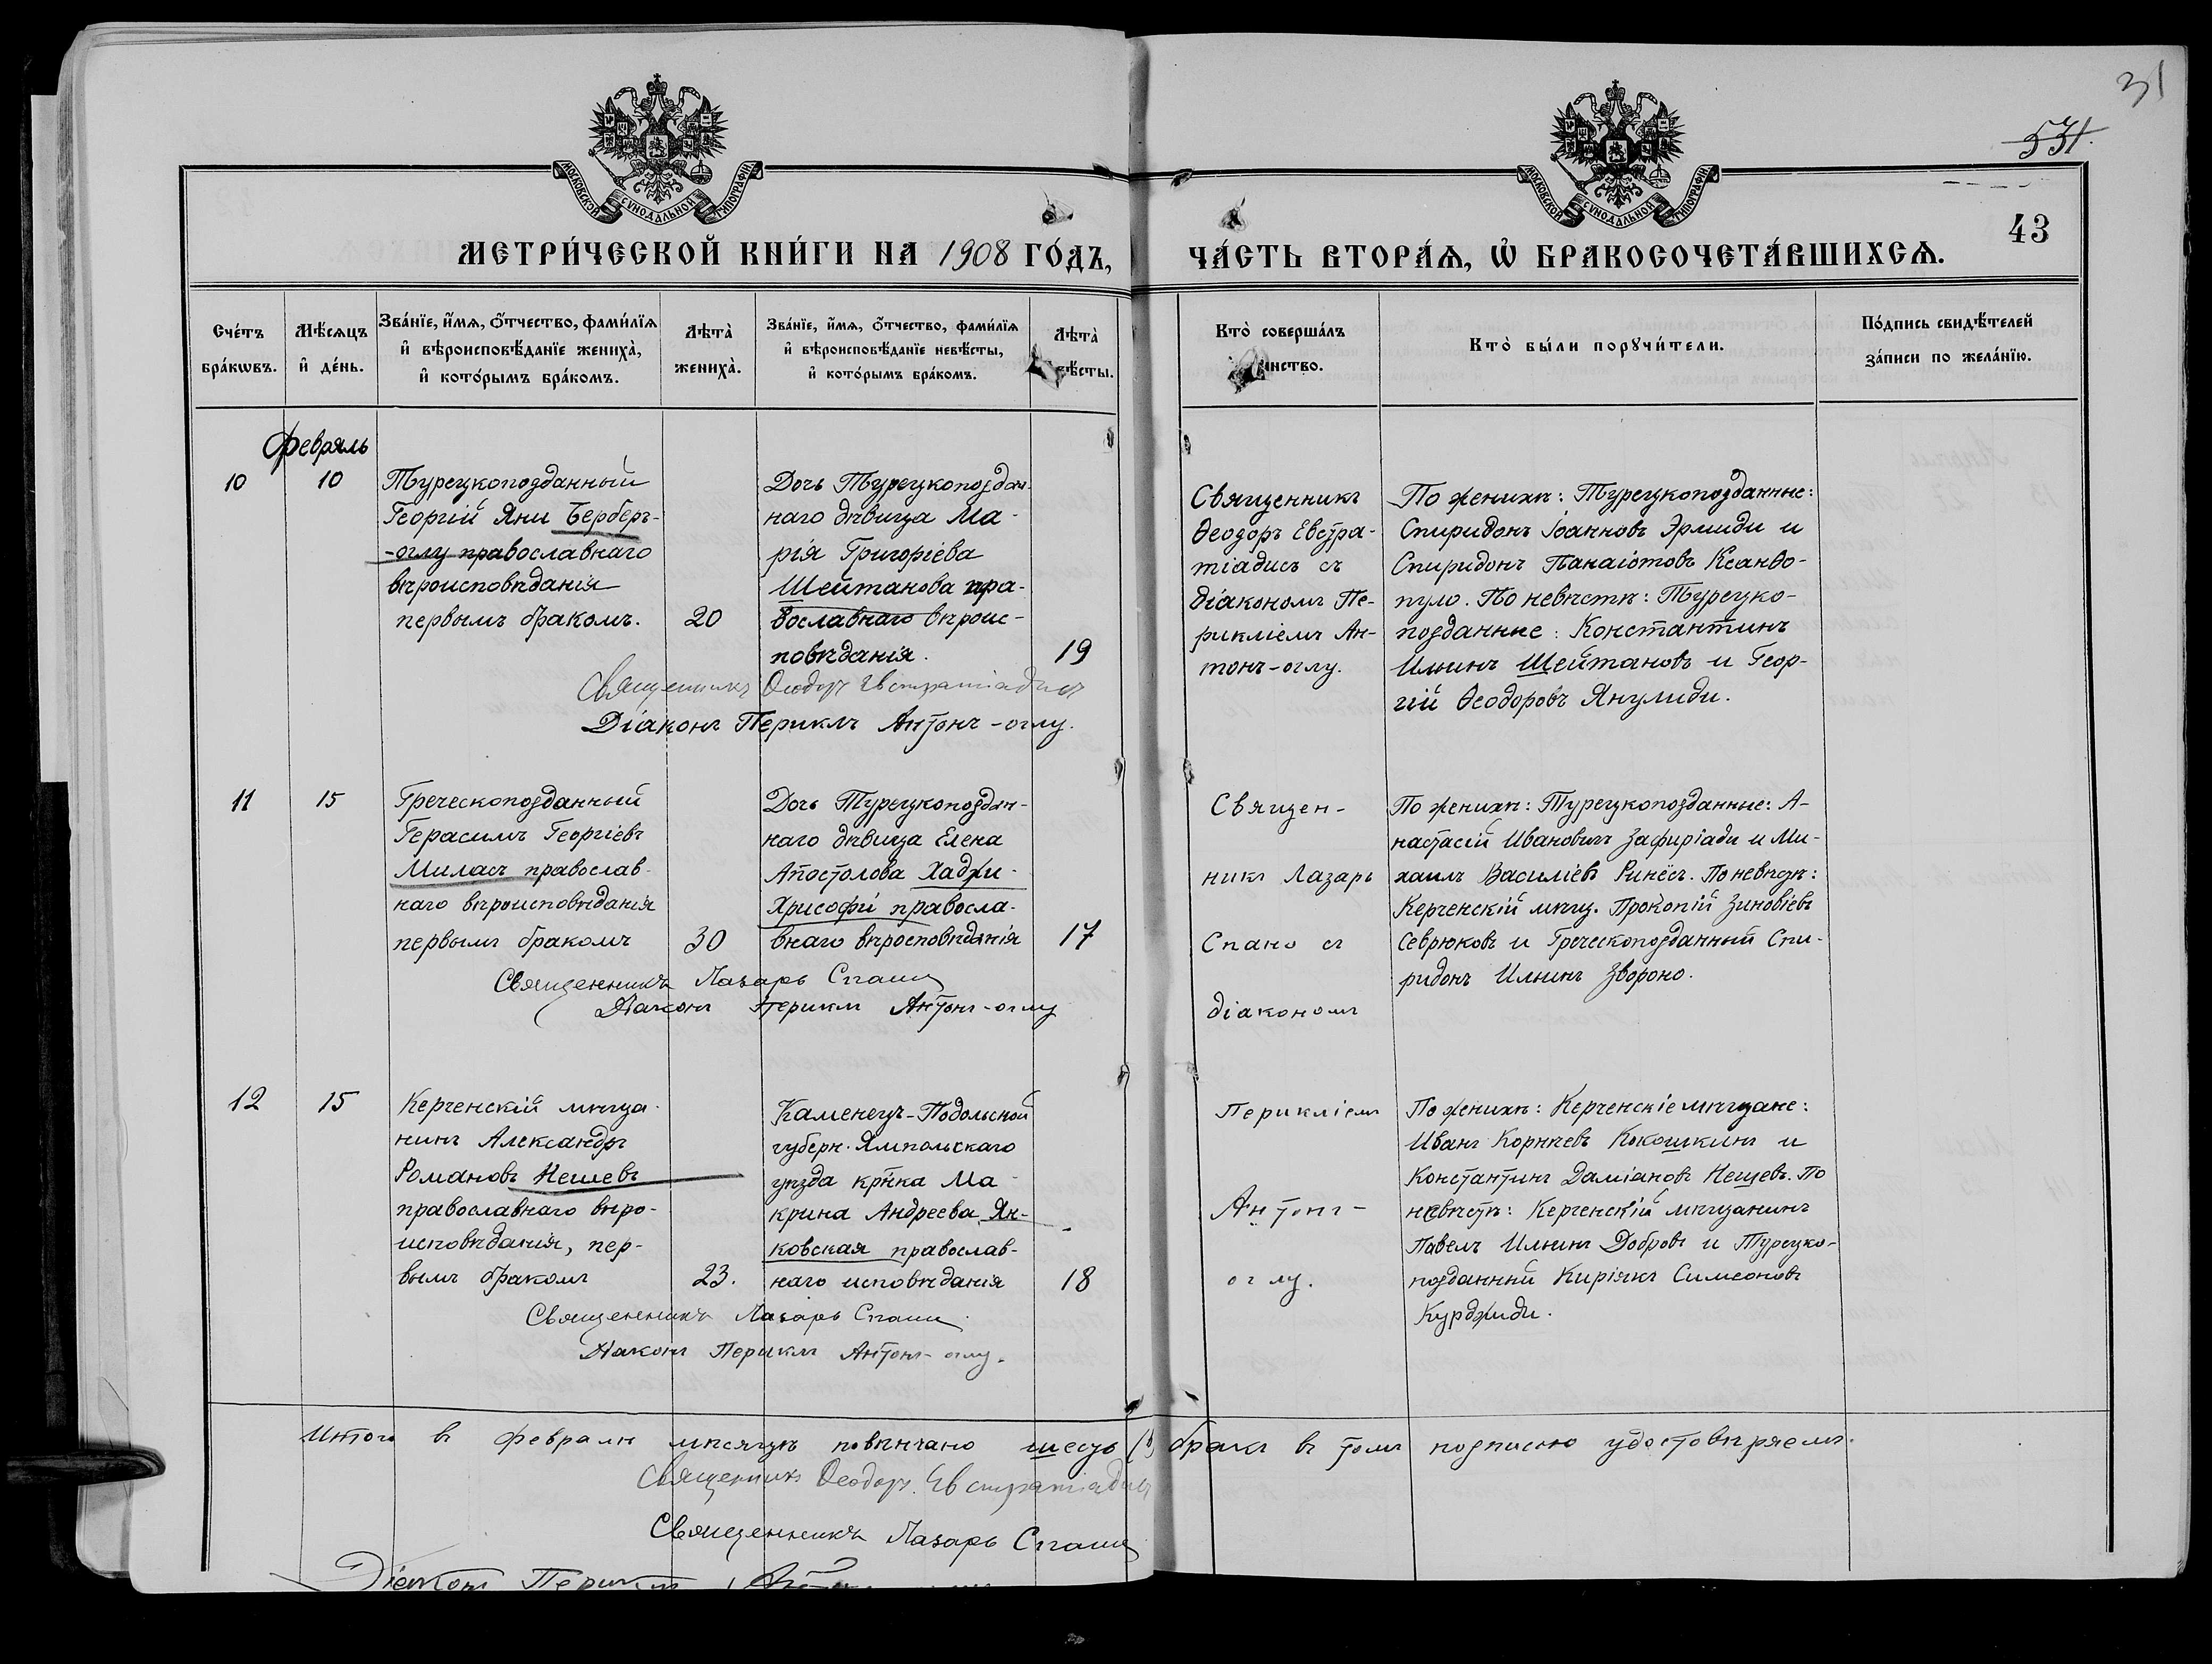 31
531.
МОСКОВСКОЙ СѴНОДАЛЬНОЙ ТИПОГРАФІИ
МОСКОВСКОЙ СѴНОДАЛЬНОЙ ТИПОГРАФІИ
43
МЕТРИ́ЧЕСКОЙ КНИ́ГИ НА 1908 ГО́ДЪ,
ЧА́СТЬ ВТОРА́Ѧ, Ѽ БРАКОСОЧЕТА́ВШИХСѦ.
Сче́тъ
бра́кѡвъ.
Мѣ́сѧцъ
и҆ де́нь.
Зва́нїе, и҆́мѧ, ѻ҆́тчество, фами́лїѧ
и҆ вѣроисповѣ́данїе жениха̀,
и҆ кото́рымъ бра́комъ.
Лѣта̀
жениха̀.
Зва́нїе, и҆́мѧ, ѻ҆́тчество, фами́лїѧ
и҆ вѣроисповѣ́данїе невѣ́сты,
и҆ кото́рымъ бра́комъ.
Лѣта̀
вѣ́сты.
Кто̀ соверша́лъ
инство.
Кто̀ бы́ли порꙋчи́тели.
По́дпись свидѣ́телей
за́писи по жела́нїю.
Февраль
10
10
Турецкоподданный
Георгій Яни Берберъ-
-оглу православнаго
вѣроисповѣданія
первымъ бракомъ.
20
Дочь Турецкоподдан-
наго дѣвица Ма-
рія Григоріева
Шейтанова пра-
вославнаго вѣроис-
повѣданія.
19
Священникъ
Ѳеодоръ Евстра-
тіадисъ съ
діакономъ Пе-
рикліемъ Ан-
тонъ-оглу.
По женихѣ: Турецкоподданные:
Спиридонъ Іоанновъ Эрмиди и
Спиридонъ Панаіотовъ Ксанѳо-
пуло. По невѣстѣ: Турецко-
подданные: Константинъ
Ильинъ Шейтановъ и Геор-
гій Ѳеодоровъ Янулиди.
Священникъ Ѳеодоръ Евстратіадисъ
Діаконъ Периклъ Антонъ-оглу.
11
15
Греческоподданный
Герасимъ Георгіевъ
Миласъ православ-
наго вѣроисповѣданія
первымъ бракомъ
30
Дочь Турецкоподдан-
наго дѣвица Елена
Апостолова Хаджи-
Хрисофи правосла-
внаго вѣросповѣданія
17
Священ-
никъ Лазарь
Спано съ
діакономъ
По женихѣ: Турецкоподданные: А-
настасій Ивановичъ Зафиріади и Ми-
хаилъ Василіевъ Ринёсъ. По невѣстѣ:
Керченскій мѣщ. Прокопій Зиновіевъ
Севрюковъ и Греческоподданный Спи-
ридонъ Ильинъ Звороно.
Священникъ Лазарь Спано
Діаконъ Периклъ Антонъ-оглу
12
15
Керченскій мѣща-
нинъ Александръ
Романовъ Нешевъ
православнаго вѣро-
исповѣданія, пер-
вымъ бракомъ
23.
Каменецъ-Подольской
губерн. Ямпольскаго
уѣзда крн̄ка Ма-
крина Андреева Ян-
ковская православ-
наго исповѣданія
18
Перикліемъ
Антонъ-
оглу.
По женихѣ: Керченскіе мѣщане:
Иванъ Корнѣевъ Кокошкинъ и
Константинъ Даміановъ Нешевъ. По
невѣстѣ: Керченскій мѣщанинъ
Павелъ Ильинъ Добровъ и Турецко-
подданный Киріякъ Симеоновъ
Курджиди.
Священникъ Лазарь Спано
Діаконъ Периклъ Антонъ-оглу.
Итого въ февралѣ мѣсяцѣ повѣнчано шесть (6) бракъ въ томъ подписью удостовѣряемъ.
Священникъ Ѳеодоръ Евстратіадисъ
Священникъ Лазарь Спано
Діаконъ Периклъ